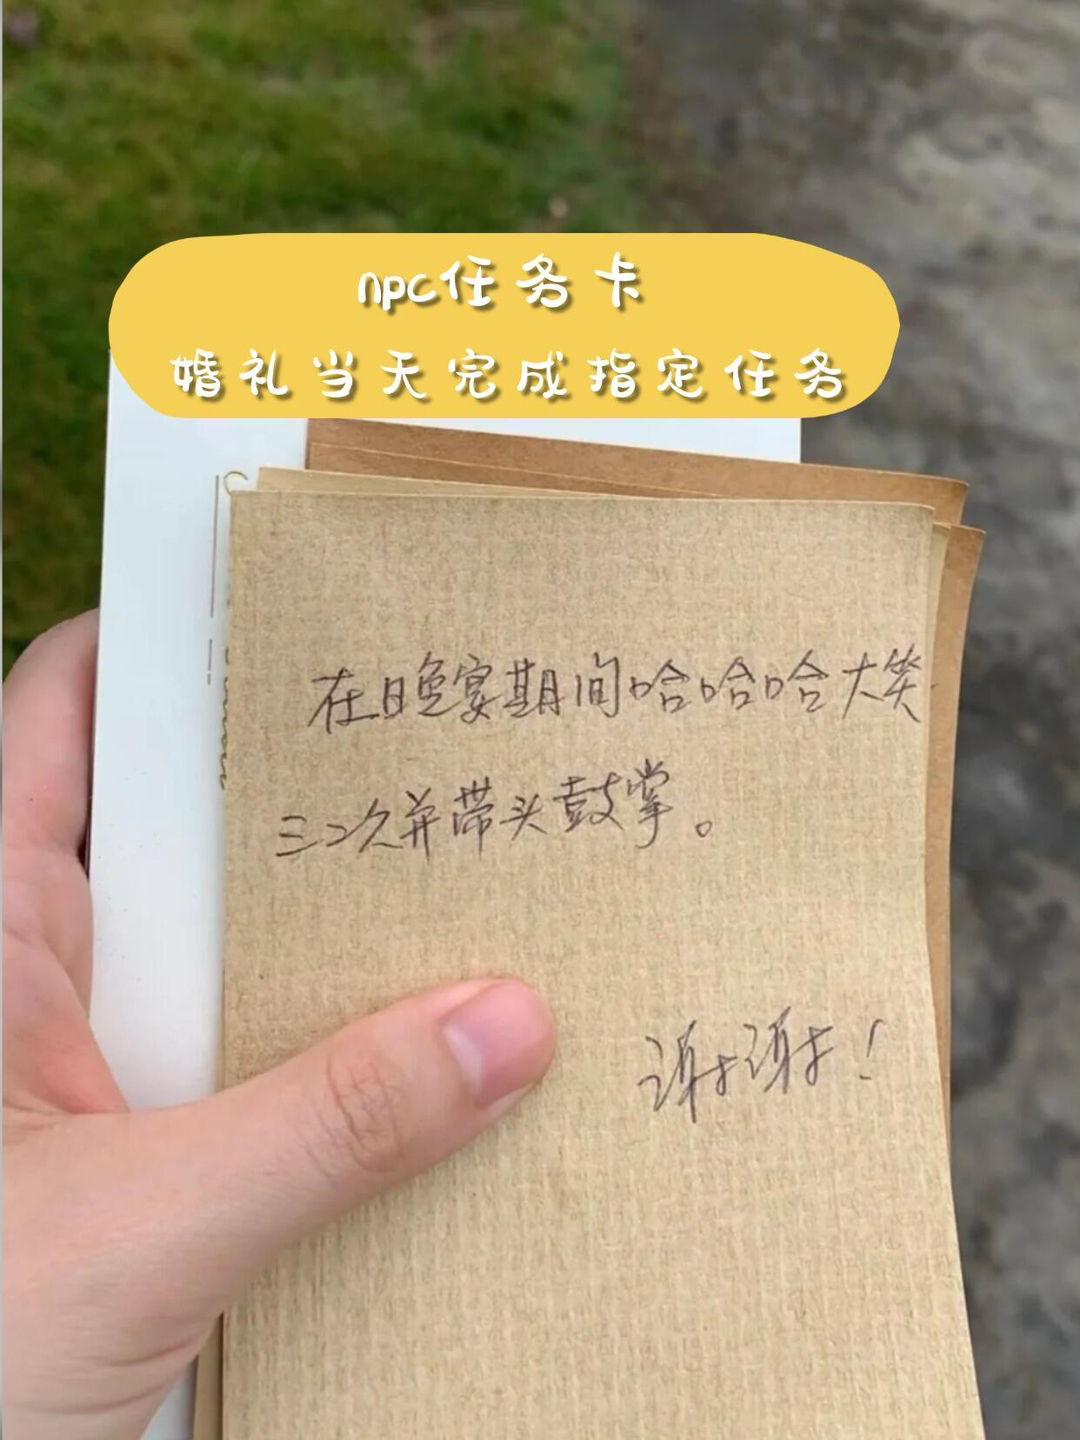 npc任务卡
婚礼当天完成指定任务
在晚宴期间哈哈哈大笑
三次并带头鼓掌。
谢谢!